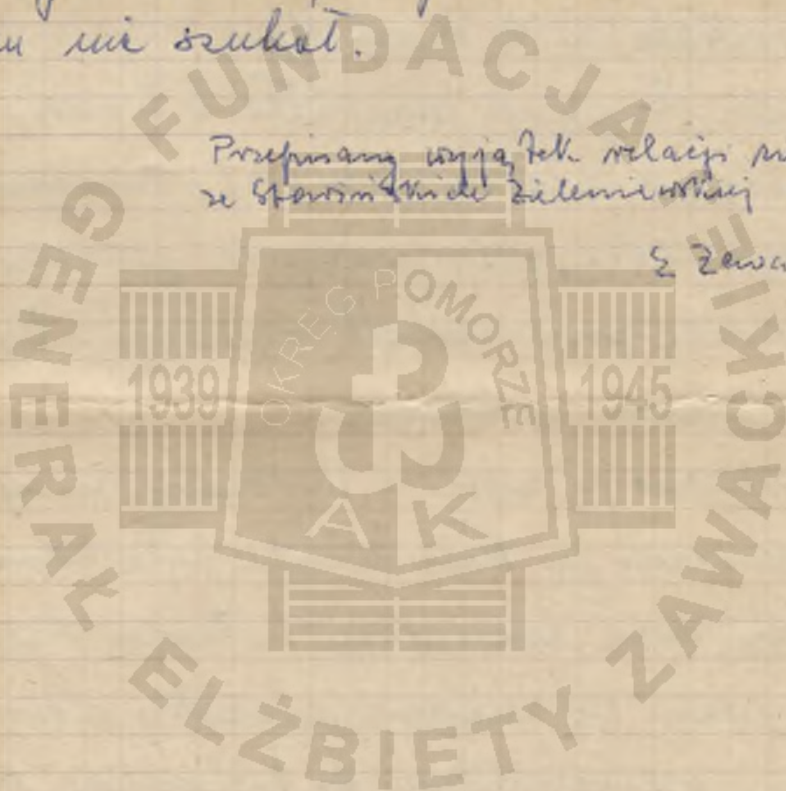 u nie szukał.
Przepisany wyjątek relacji
ze Słowińskich Zieleniewskiej
E Zawa
FUNDACJA
GENERAŁ ELŻBIETY ZAWACKIEJ
OKRĘG POMORZE
1939 1945
AK